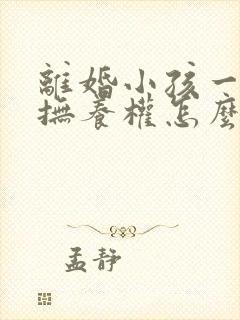 離婚小孩一
撫養權怎麼
孟靜